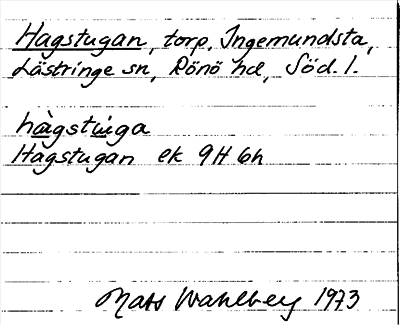 Hagstugan, torp, Ingemundsta,
Lästringe sn, Rönö hd, Söd. l.
hàgstùga
Hagstugan ek 9H 6h
Mats Wahlberg 1973